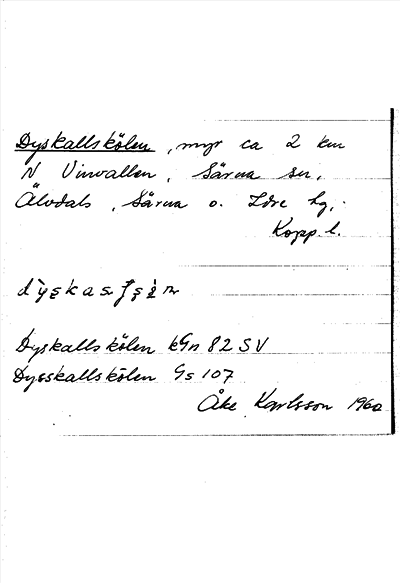 Dyskallskölen, myr ca 2 km
N Vinvallen, Särna sn,
Älvdals, Särna o. Idre hg,
Kopp. l.
Dyskallskölen kGn 82 SV
Dysskallskölen Gs 107
Åke Karlsson 1960